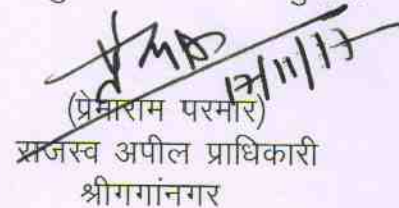 17/11/17
(प्रेमाराम परमार)
राजस्व अपील प्राधिकारी
श्रीगगांनगर